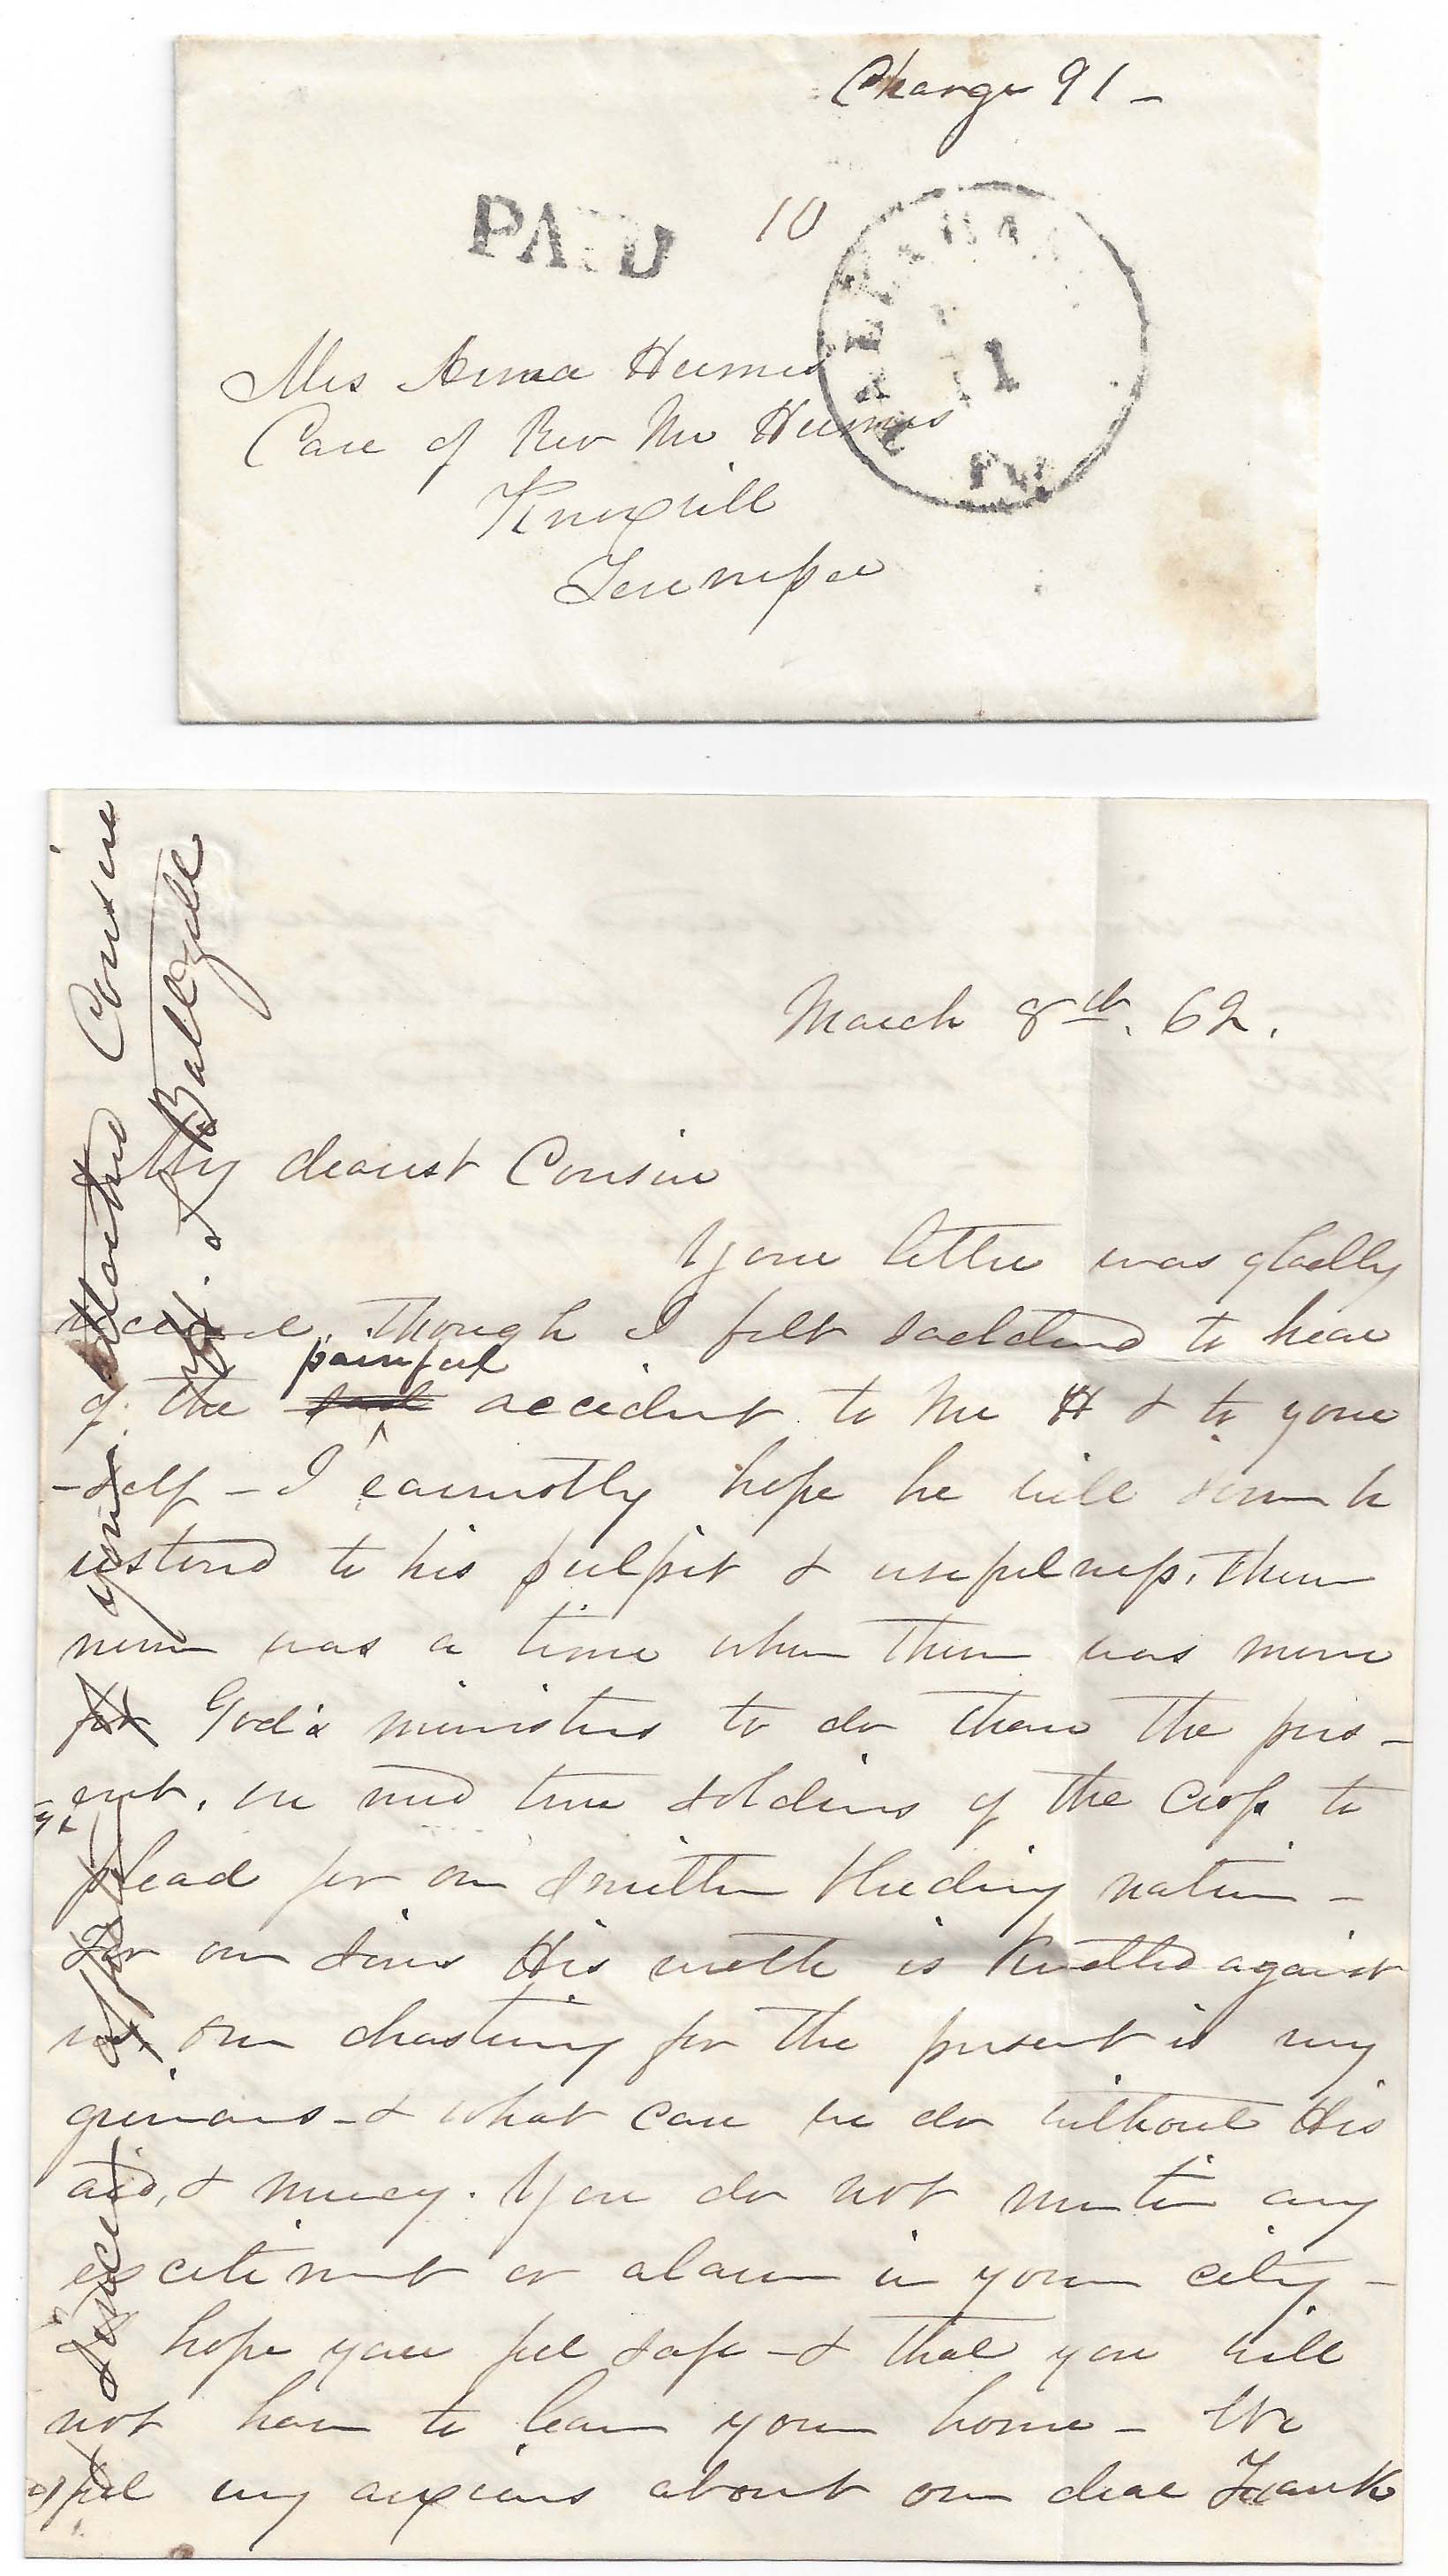 Change 91 -
PAID 10
11
Mrs Anna Humes
Care of Rev Mr Humes
Knoxvill
Tennessee
March 8th. 62.
My dearest Cousin
Your letter was gladly
though I felt saddened to hear
painful
of the accident to Mr H & to your
-self - I earnestly hope he will soon be
restored to his pulpit & usefulness. There
never was a time when there was more
for God's ministers to do than the pres-
ent, we need true soldiers of the Cross to
plead for our smitten bleeding nation -
For our sins His wrath is kindled against
us, our chastening for the present is very
grievous - & what can we do without His
aid, & mercy. You do not mention any
excitement or alarm in your city -
I hope you feel safe - & that you will
not have to leave your home - We
feel very anxious about our dear Frank
yours attached Cousin